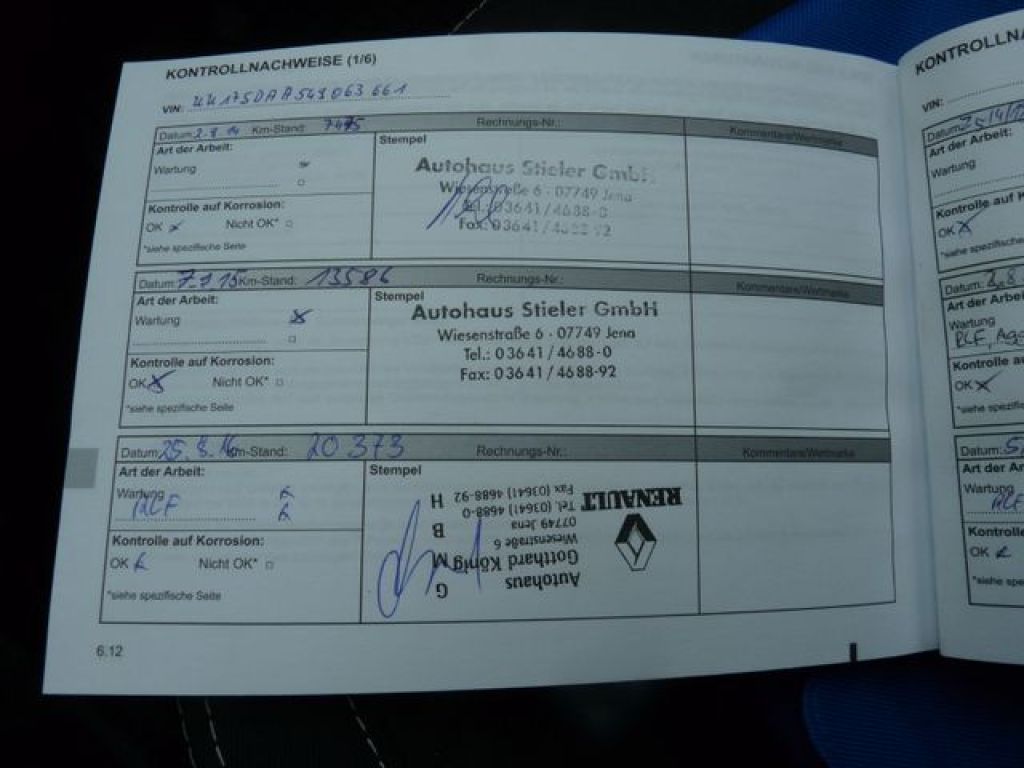 KONTROLLNACHWEISE (1/6)
VIN:
Datum: 2.9.14 Km-Stand: 7475 Rechnungs-Nr.: Kommentare/Wertmarke
Art der Arbeit:
Wartung
Kontrolle auf Korrosion:
OK Nicht OK*
*siehe spezifische Seite
Stempel
Autohaus Stieler GmbH
Wiesenstraße 6 · 07749 Jena
Tel.: 03641/4688-0
Fax: 03641/4688-92
Datum: Km-Stand: 13586 Rechnungs-Nr.: Kommentare/Wertmarke
Art der Arbeit:
Wartung
Kontrolle auf Korrosion:
OK Nicht OK*
*siehe spezifische Seite
Stempel
Autohaus Stieler GmbH
Wiesenstraße 6 · 07749 Jena
Tel.: 03641/4688-0
Fax: 03641/4688-92
Datum: 25.8.16 Km-Stand: 20373 Rechnungs-Nr.: Kommentare/Wertmarke
Art der Arbeit:
Wartung
RCF
Kontrolle auf Korrosion:
OK Nicht OK*
*siehe spezifische Seite
Stempel
Autohaus
Gotthard König
Wiesenstraße 6
07749 Jena
Tel. (03641) 4688-0
Fax (03641) 4688-92
G
M
B
H
RENAULT
6.12
KONTROLLNA
VIN:
Datum:
Art der Arbeit:
Wartung
Kontrolle auf
OK
*siehe spezifische
Datum: 2.8
Art der Arbei
Wartung
RCF,
Kontrolle au
OK
*siehe spezifi
Datum:
Art der Ar
Wartung
RCF
Kontroll
OK
*siehe spe